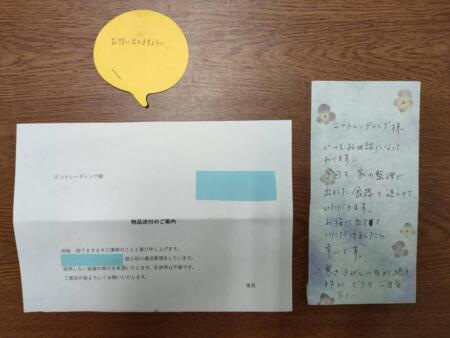 お役に立ちますように
エコトレーディング
物品送付のご案内
拝啓 時下ますますご清栄のことと喜び申し上げます。
の遺品整理をしています。
使用しない食器の寄付を希望いたします。礼状等は不要です。
ご査収の程よろしくお願いいたします。
敬具
エコトレーディング様、
いつもお世話になって
おります。
家の整理で
出ました食器を送らせて
いただきます。
お役に立てて
いただけましたら
幸いです。
寒さきびしい日が続き
ますが どうぞご自愛
下さい